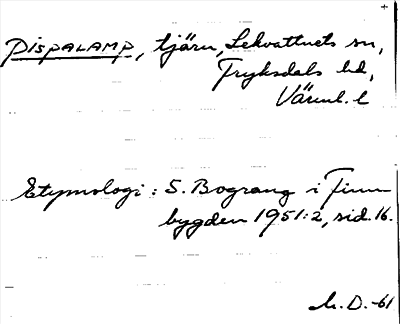 Pispalamp, tjärn, Lekvattnets sn,
Fryksdals hd,
Värml. l
Etymologi: S. Bograng i Finn-
bygden 1951:2, sid. 16.
M. D. -61